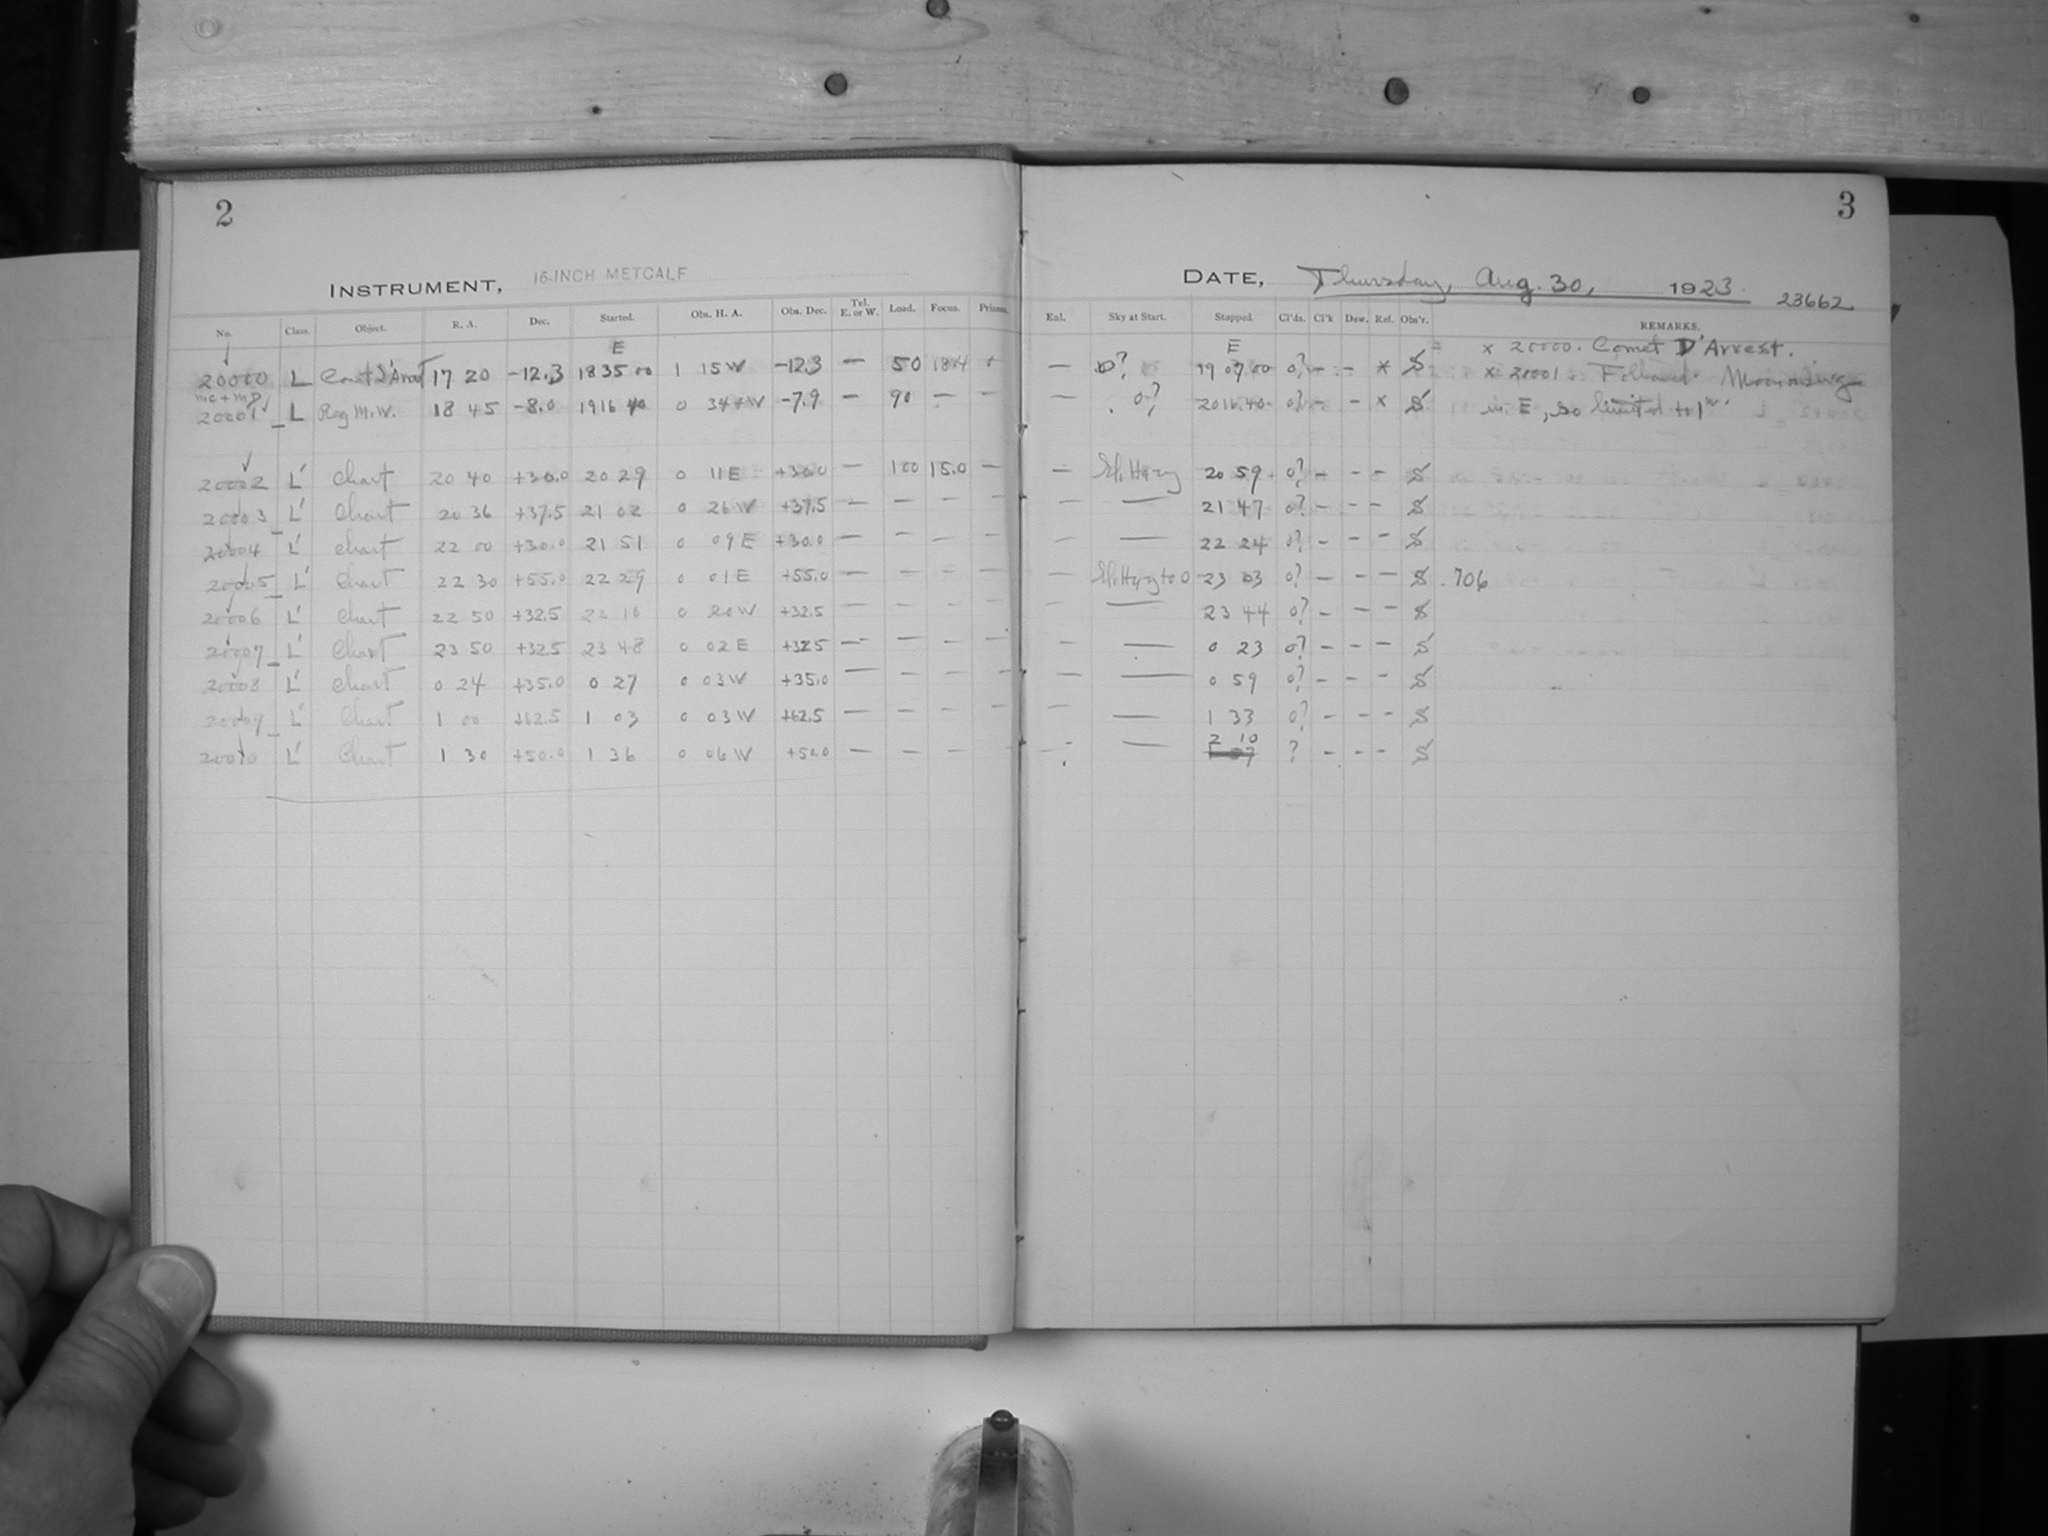 2
INSTRUMENT, 16-INCH METCALF
No. Class. Object. R. A. Dec. Started. Obs. H. A. Obs. Dec. Tel. E. or W. Load. Focus. Prisms.
E
20000 L Comet D'Arrest 17 20 -12.3 18 35 00 1 15 W -12.3 — 50 18.4
mc + mp
20001 L Reg M.W. 18 45 -8.0 19 16 40 0 34 W -7.9 — 90 — —
20002 L' Chart 20 40 +30.0 20 29 0 11 E +30.0 — 100 15.0 —
20003 L' Chart 20 36 +37.5 21 02 0 26 W +37.5 — — — —
20004 L' Chart 22 00 +30.0 21 51 0 09 E +30.0 — — — —
20005 L' Chart 22 30 +55.0 22 29 0 01 E +55.0 — — — —
20006 L' Chart 22 50 +32.5 23 10 0 20 W +32.5 — — — —
20007 L' Chart 23 50 +32.5 23 48 0 02 E +32.5 — — — —
20008 L' Chart 0 24 +35.0 0 27 0 03 W +35.0 — — — —
20009 L' Chart 1 00 +62.5 1 03 0 03 W +62.5 — — — —
20010 L' Chart 1 30 +50.0 1 36 0 06 W +50.0 — — — —
3
DATE, Thursday, Aug. 30, 1923. 23662
Enl. Sky at Start. Stopped. Cl'ds. Cl'k Dew. Ref. Obs'r. REMARKS.
E
— 0? 19 07 00 0? — — * S x 20000. Comet D'Arrest.
— 0? 20 16.40 0? — — x S x 20001. Followed. Moon rising
in E, so limited to 1
— Sl. Hazy 20 59 0? — — — S
— — 21 47 0? — — — S
— — 22 24 0? — — — S
— Sl. Hazy to 0 23 03 0? — — — S .706
— — 23 44 0? — — — S
— — 0 23 0? — — — S
— — 0 59 0? — — — S
— — 1 33 0? — — — S
— — 2 10 ? — — — S